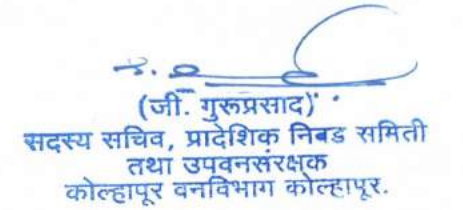 (जी. गुरूप्रसाद)
सदस्य सचिव, प्रादेशिक निबड समिती
तथा उपवनसंरक्षक
कोल्हापूर वनविभाग कोल्हापूर.